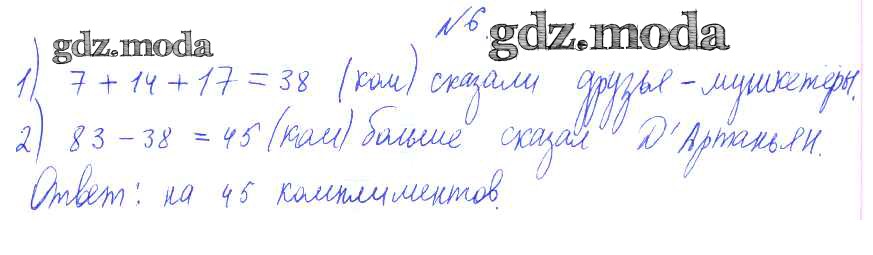 №6.
gdz.moda gdz.moda
1) 7 + 14 + 17 = 38 (ком) сказали друзья - мушкетёры.
2) 83 - 38 = 45 (ком) больше сказал Д'Артаньян.
Ответ: на 45 комплиментов.